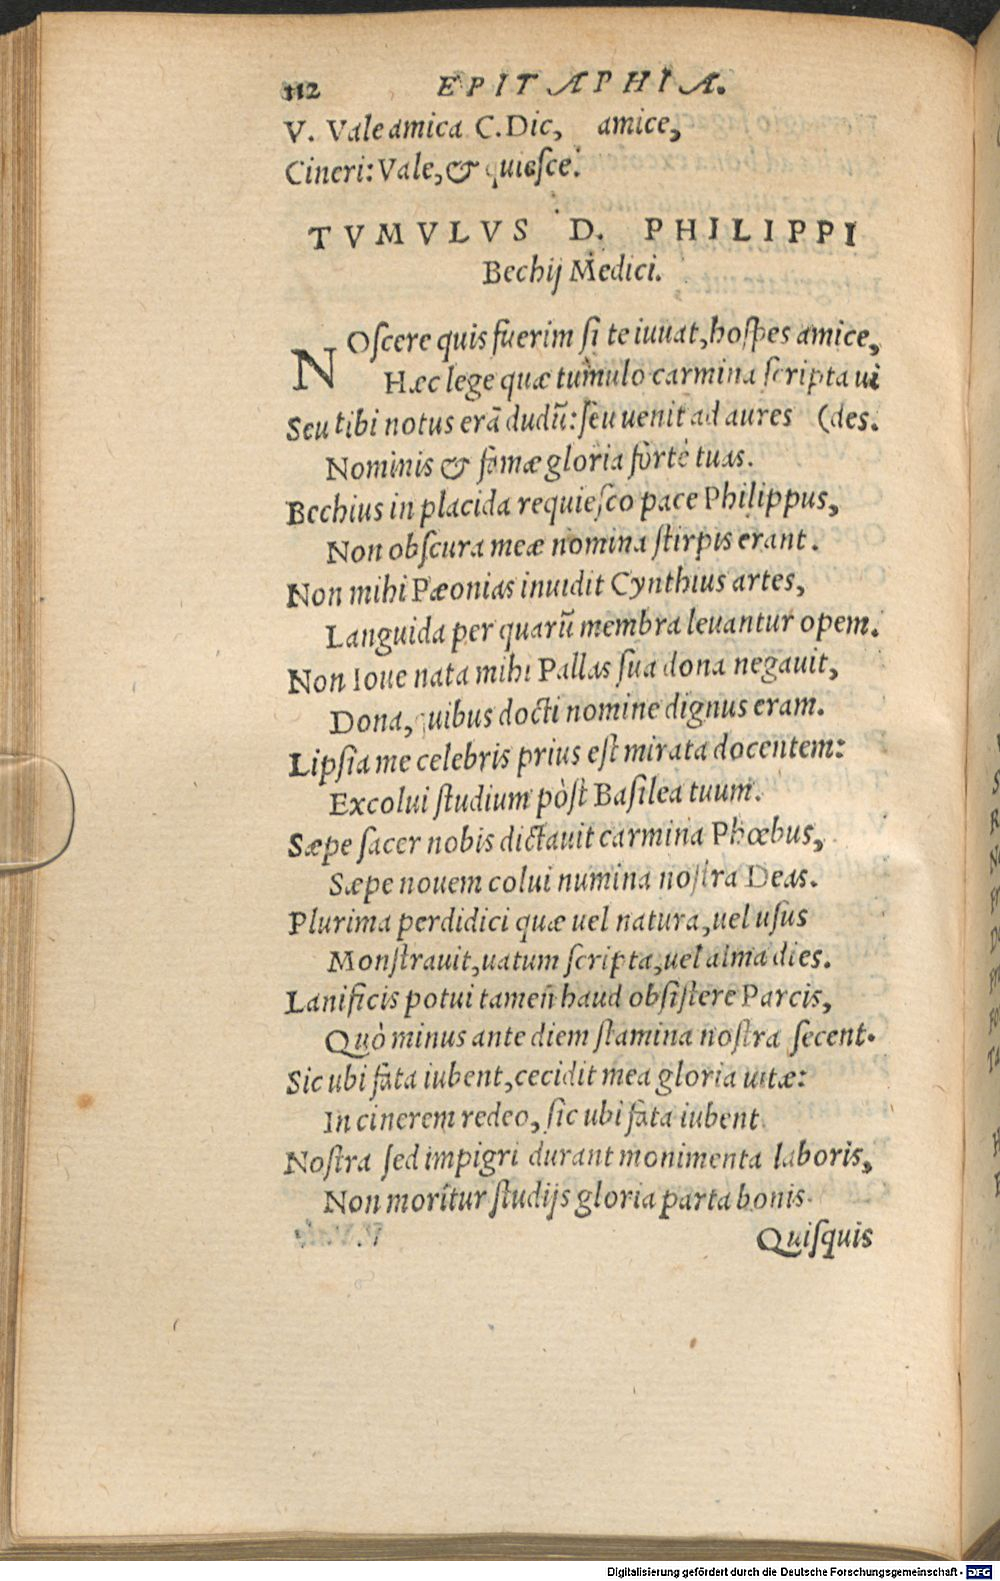 112 EPITAPHIA.
V. Vale amica C. Dic, amice,
Cineri: Vale, & quiesce.
TVMVLVS D. PHILIPPI
Bechij Medici.
NOſcere quis fuerim ſi te iuuat, hoſpes amice,
Hæc lege quæ tumulo carmina ſcripta ui
Seu tibi notus erā dudū: ſeu uenit ad aures (des.
Nominis & famæ gloria fortè tuas.
Bechius in placida requieſco pace Philippus,
Non obſcura meæ nomina ſtirpis erant.
Non mihi Pæonias inuidit Cynthius artes,
Languida per quarū membra leuantur opem.
Non Ioue nata mihi Pallas ſua dona negauit,
Dona, quibus docti nomine dignus eram.
Lipſia me celebris prius eſt mirata docentem:
Excolui ſtudium pòſt Baſilea tuum.
Sæpe ſacer nobis dictauit carmina Phœbus,
Sæpe nouem colui numina noſtra Deas.
Plurima perdidici quæ uel natura, uel uſus
Monſtrauit, uatum ſcripta, uel alma dies.
Lanificis potui tamen haud obſiſtere Parcis,
Quò minus ante diem ſtamina noſtra ſecent.
Sic ubi fata iubent, cecidit mea gloria uitæ:
In cinerem redeo, ſic ubi fata iubent.
Noſtra ſed impigri durant monimenta laboris,
Non moritur ſtudijs gloria parta bonis.
Quiſquis
Digitalisierung gefördert durch die Deutsche Forschungsgemeinschaft - DFG